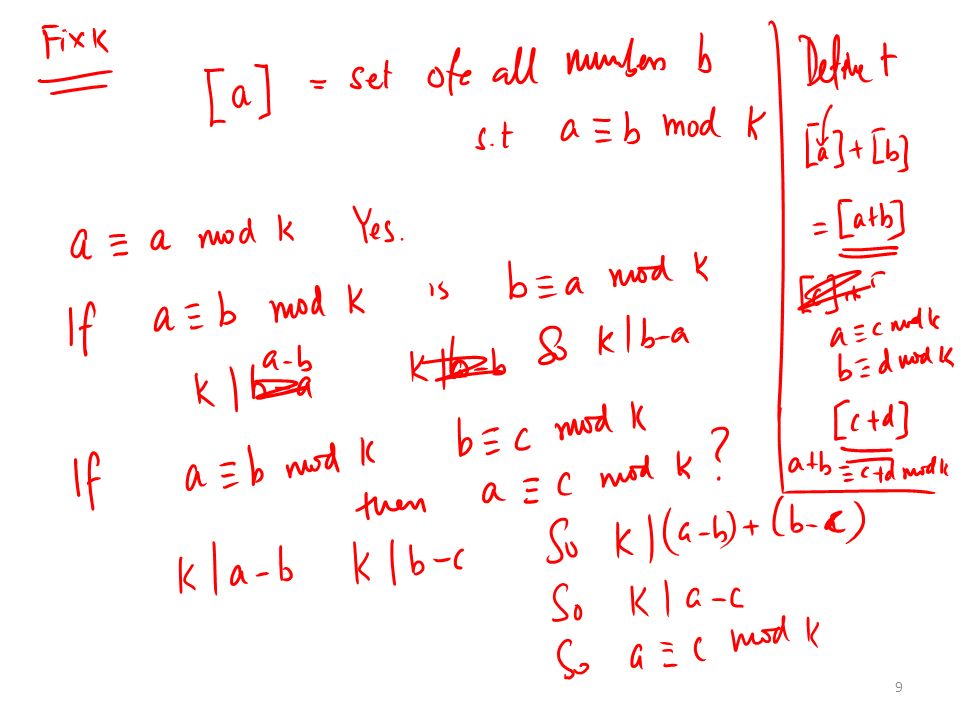 Fix k
[a] = set ofe all numbers b
s.t a ≡ b mod k
a ≡ a mod k Yes.
If a ≡ b mod k is b ≡ a mod k
k | a-b So k | b-a
If a ≡ b mod k b ≡ c mod k
then a ≡ c mod k ?
k | a-b k | b-c So k | (a-b) + (b-c)
So k | a-c
So a ≡ c mod k
Define +
[a] + [b]
= [a+b]
a ≡ c mod k
b ≡ d mod k
[c+d]
a+b ≡ c+d mod k
9